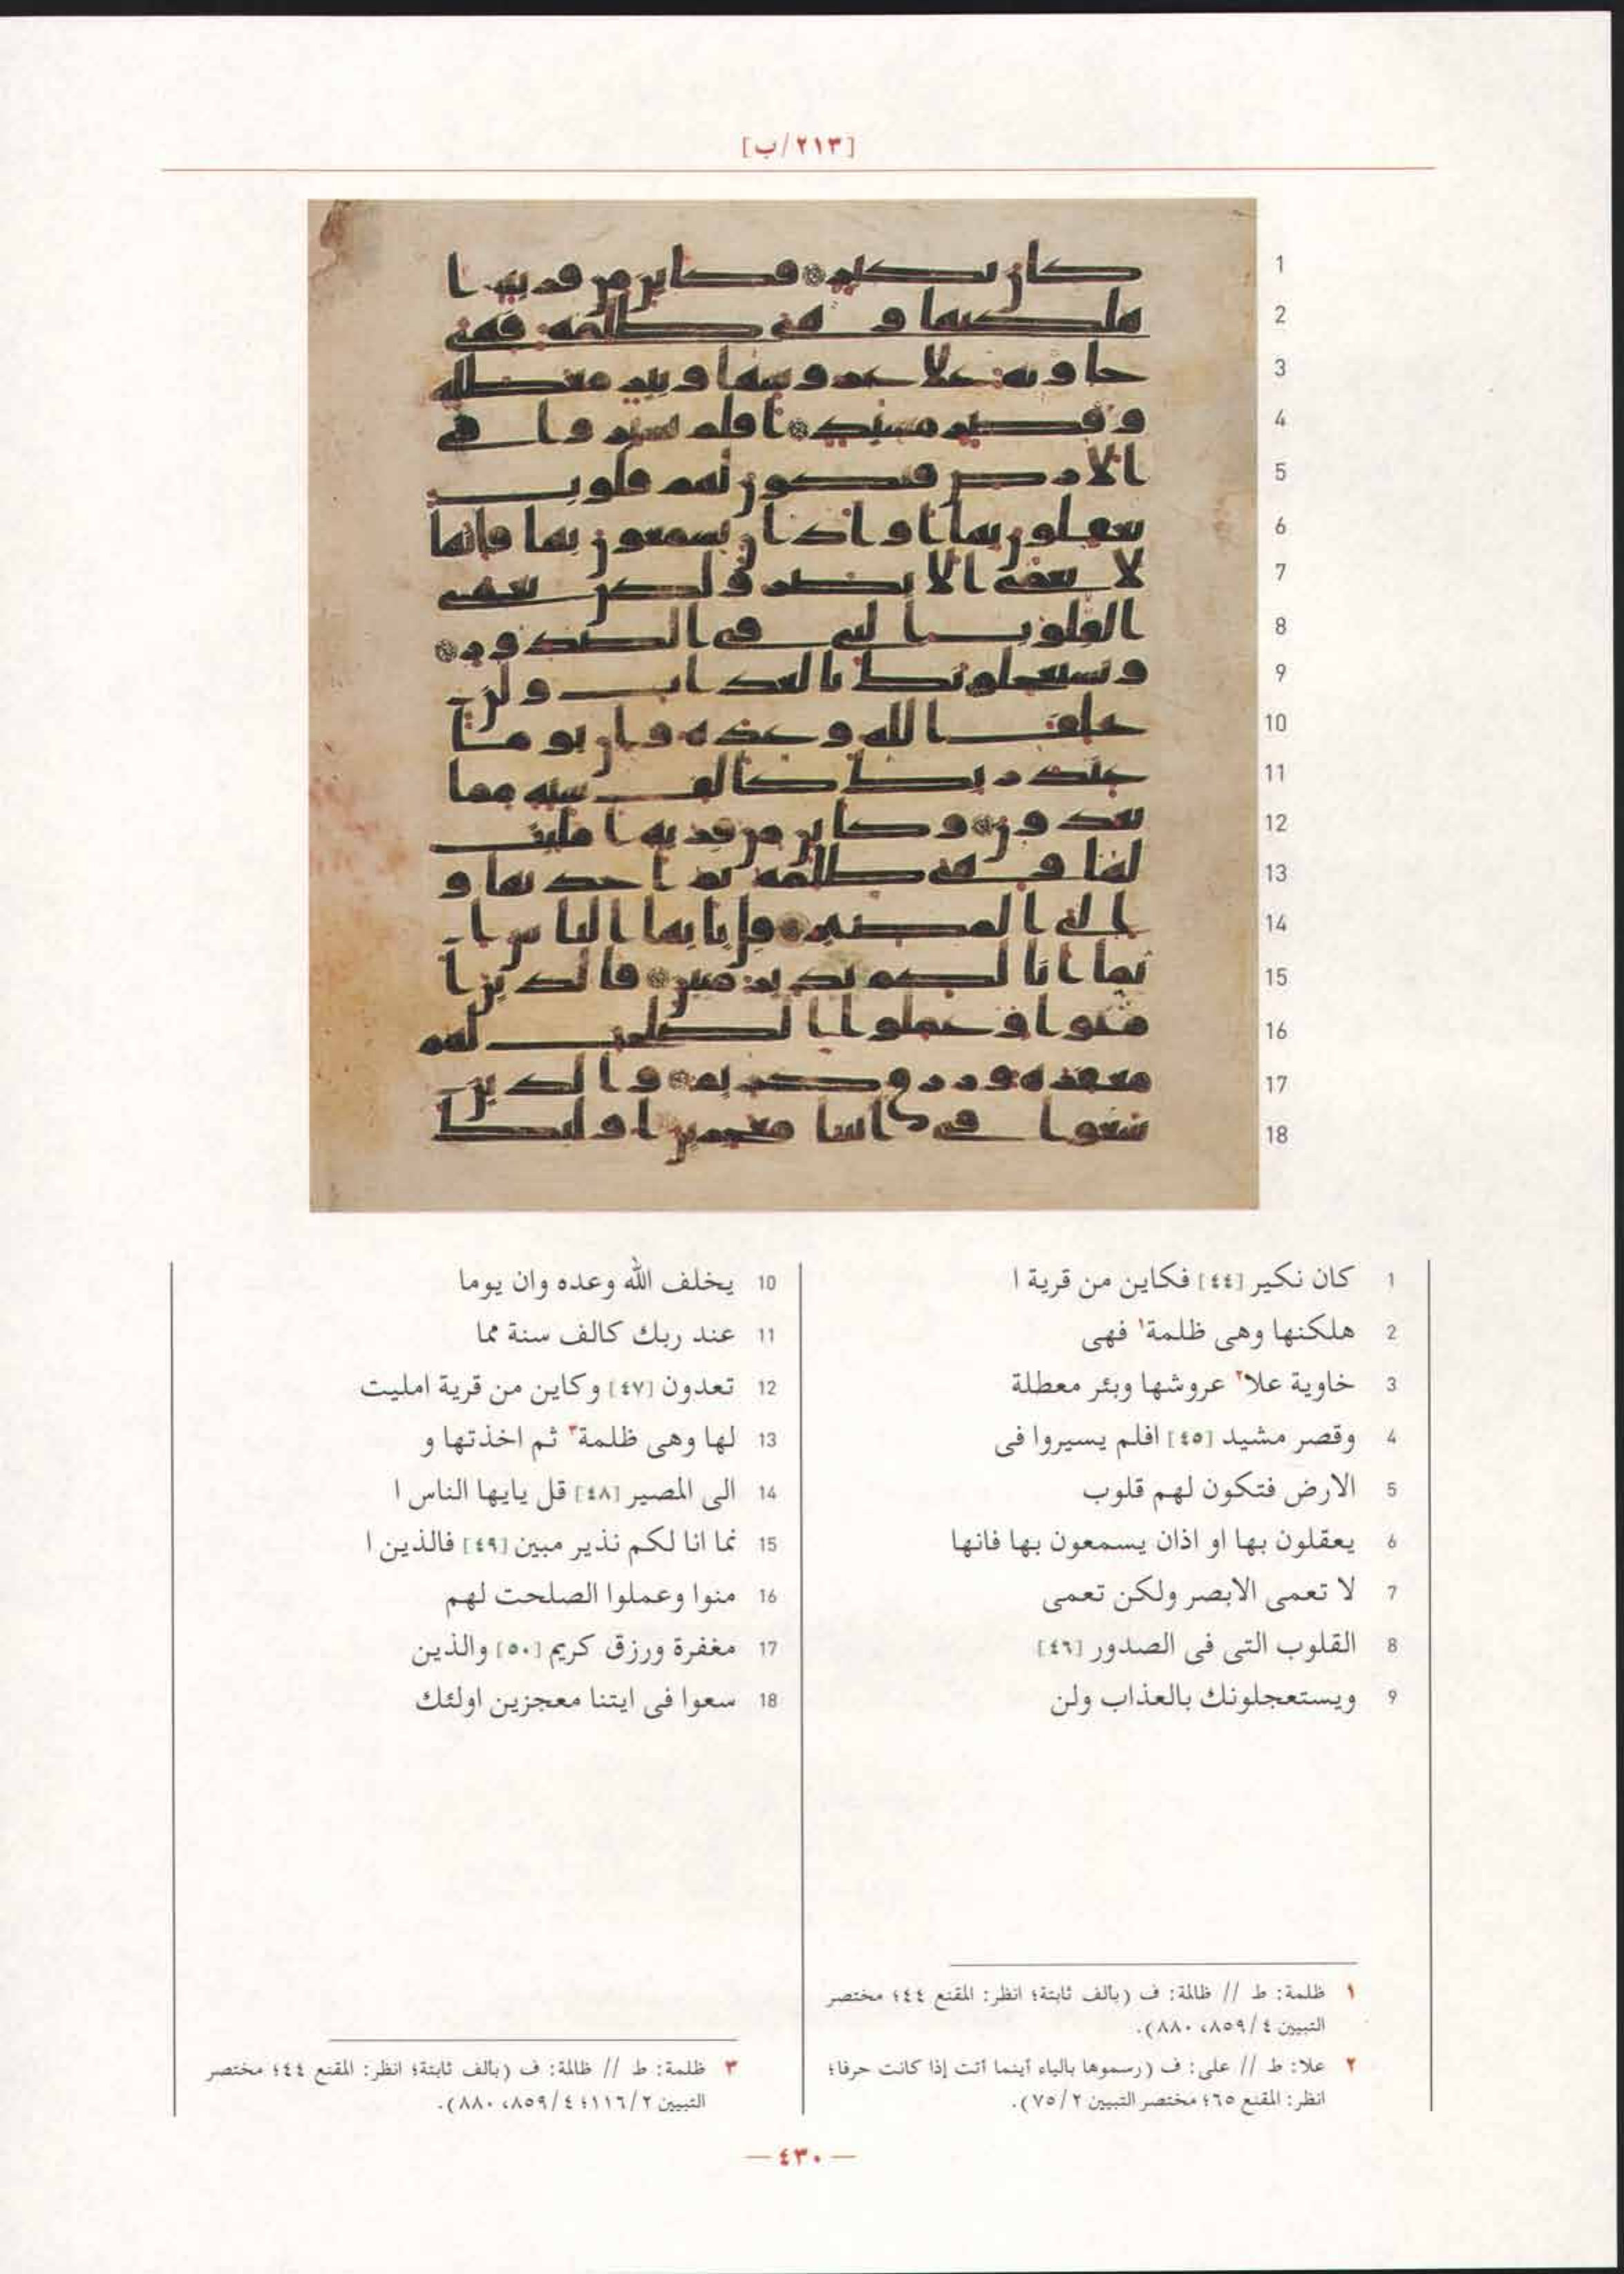 [٢١٣/ب]
1 كان نكير [٤٤] فكاين من قرية ا
2 هلكنها وهى ظلمة١ فهى
3 خاوية علا٢ عروشها وبئر معطلة
4 وقصر مشيد [٤٥] افلم يسيروا فى
5 الارض فتكون لهم قلوب
6 يعقلون بها او اذان يسمعون بها فانها
7 لا تعمى الابصر ولكن تعمى
8 القلوب التى فى الصدور [٤٦]
9 ويستعجلونك بالعذاب ولن
10 يخلف الله وعده وان يوما
11 عند ربك كالف سنة مما
12 تعدون [٤٧] وكاين من قرية امليت
13 لها وهى ظلمة٣ ثم اخذتها و
14 الى المصير [٤٨] قل يايها الناس ا
15 نما انا لكم نذير مبين [٤٩] فالذين ا
16 منوا وعملوا الصلحت لهم
17 مغفرة ورزق كريم [٥٠] والذين
18 سعوا فى ايتنا معجزين اولئك
١ ظلمة: ط // ظالمة: ف (بألف ثابتة؛ انظر: المقنع ٤٤؛ مختصر
التبيين ٤/ ٨٥٩، ٨٨٠).
٢ علا: ط // على: ف (رسموها بالياء أينما أتت إذا كانت حرفا؛
انظر: المقنع ٦٥؛ مختصر التبيين ٢/ ٧٥).
٣ ظلمة: ط // ظالمة: ف (بألف ثابتة؛ انظر: المقنع ٤٤؛ مختصر
التبيين ٢/ ١١٦؛ ٤/ ٨٥٩، ٨٨٠).
— ٤٣٠ —